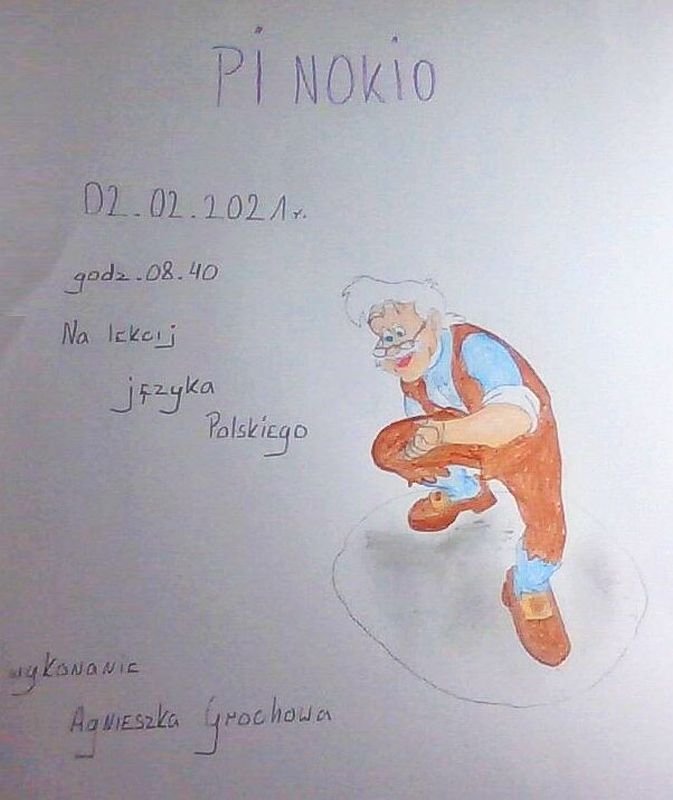 PiNOKiO
02.02.2021r.
godz.08.40
Na lekcij
języka
Polskiego
wykonanie
Agnieszka Grochowa